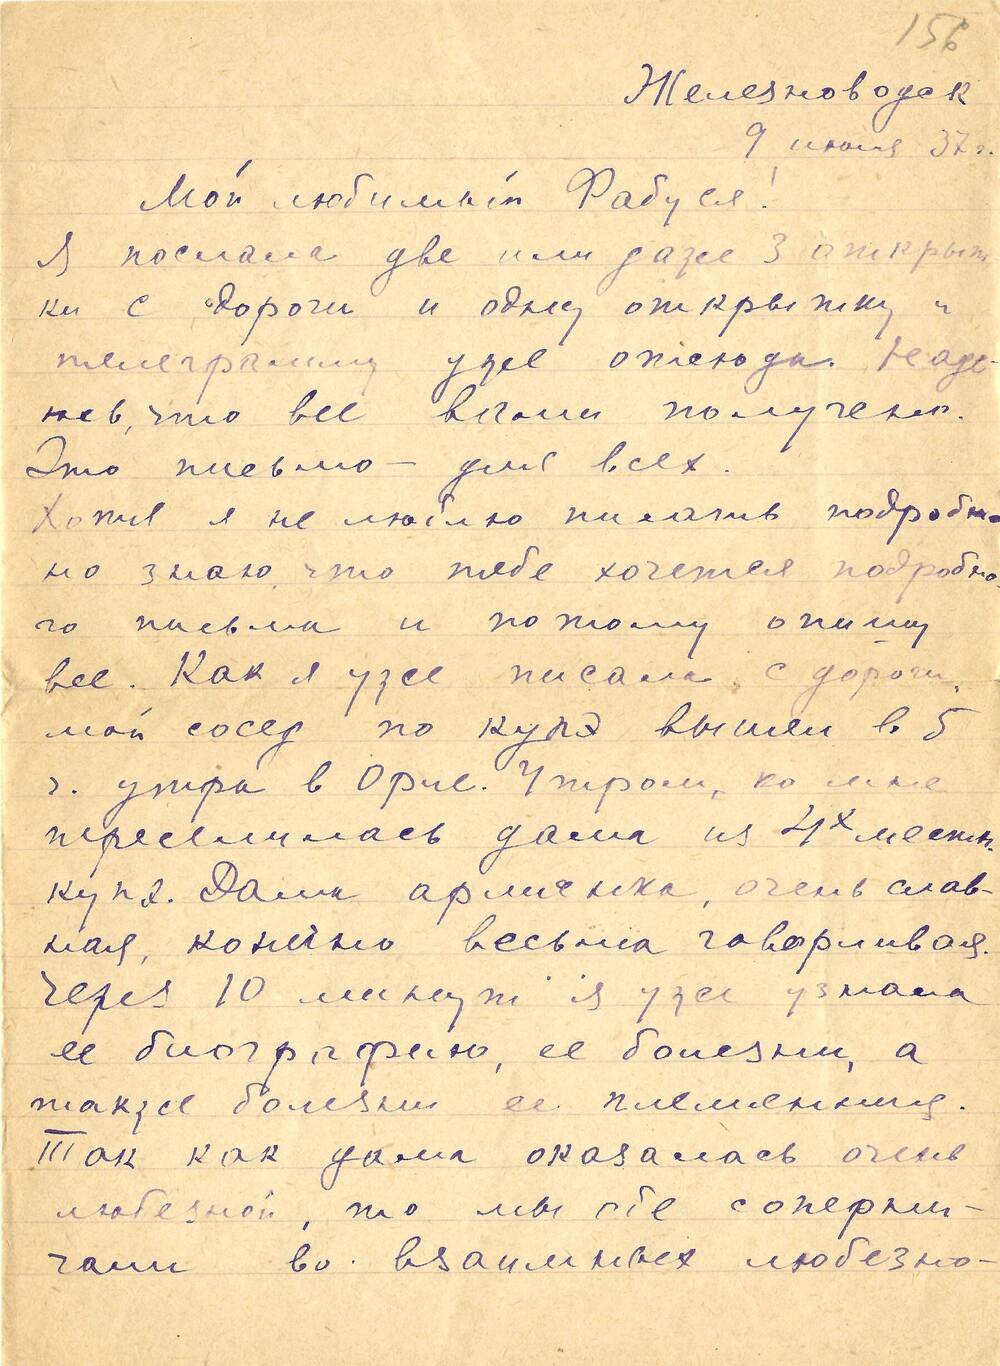 156
Железноводск
9 июня 37 г.
Мой любимый Фабуся!
Я послала две или даже 3 открыт
ки с дороги и одну открытку и
телеграмму уже отсюда. Наде-
юсь, что все вами получено.
Это письмо – для всех.
Хотя я не люблю писать подробно
но знаю, что тебе хочется подробно-
го письма и потому опишу
все. Как я уже писала с дороги,
мой сосед по купэ вышел в 5
г. утра в Орле. Утром, ко мне
переселилась дама из 4х местн.
купэ. Дама армянка, очень слав-
ная, конечно весьма говорливая.
Через 10 минут я уже узнала
ее биографию, ее болезни, а
также болезни ее племянница.
Так как дама оказалась очень
любезной, то мы обе соперни-
чали во взаимных любезно-